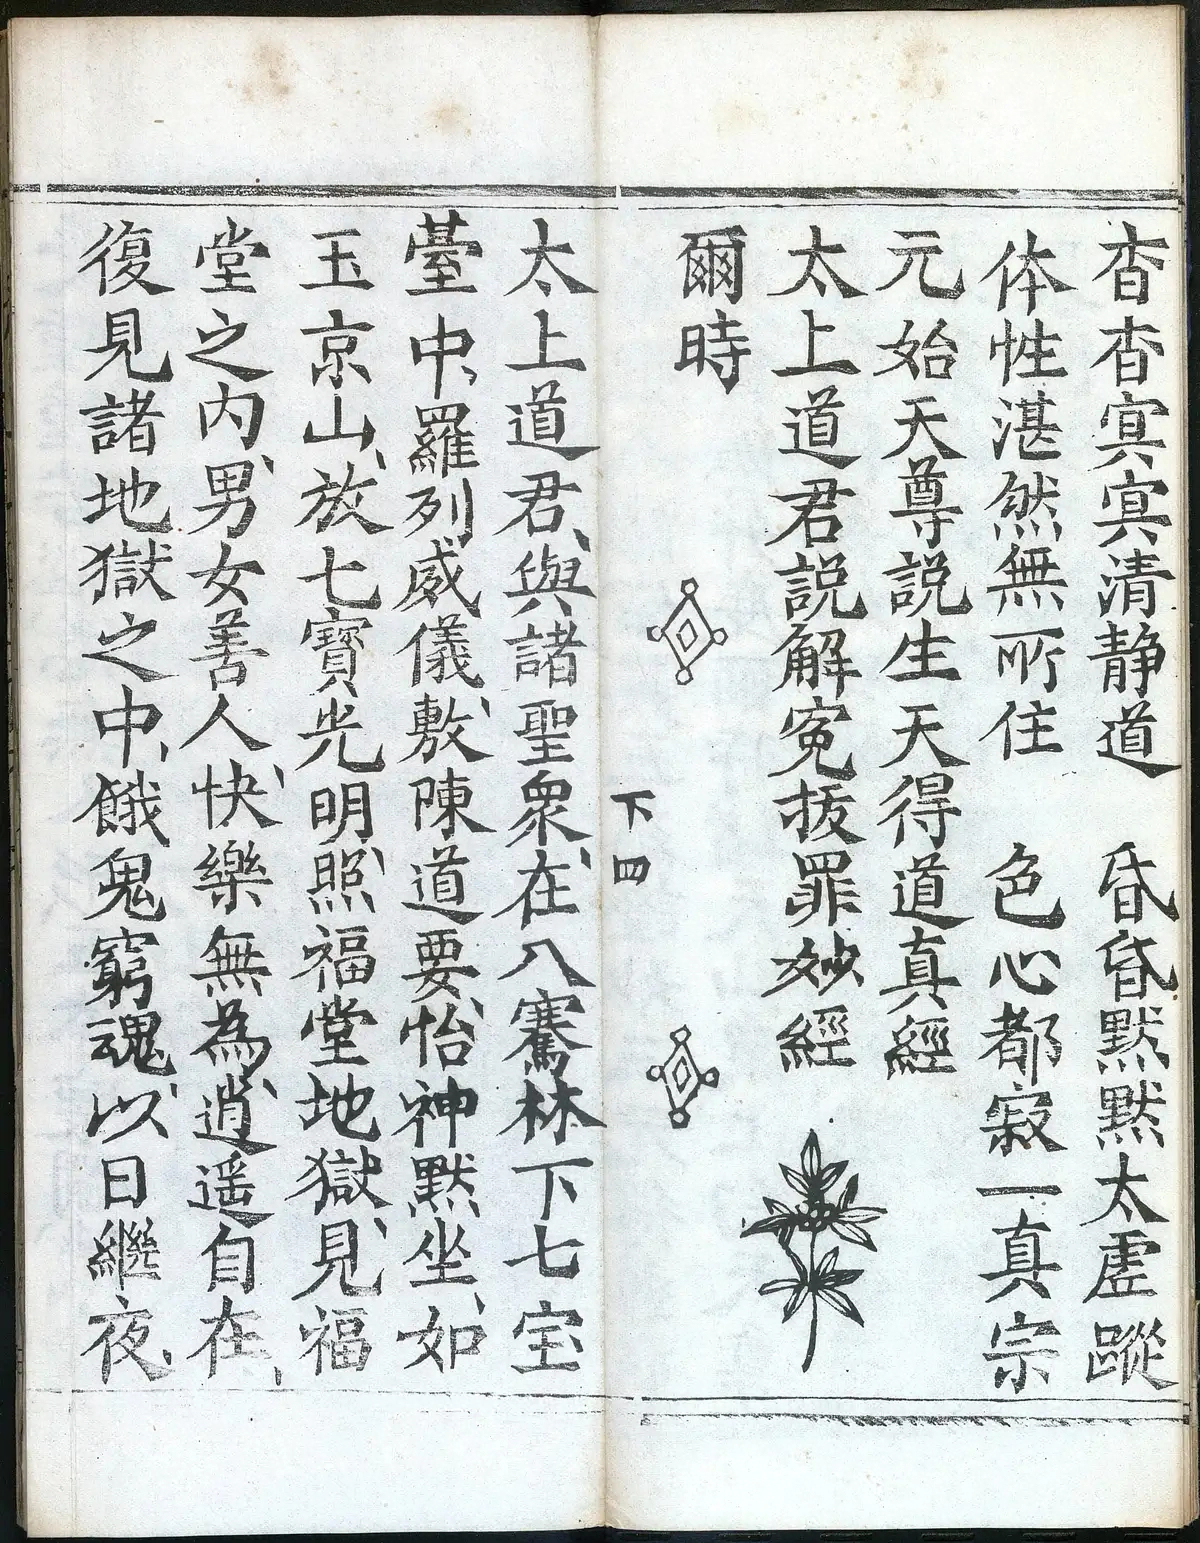 杳杳冥冥清静道　昏昏黙黙太虚蹤
体性湛然無所住　色心都寂一真宗
元始天尊説生天得道真經
太上道君説解冤拔罪妙經
爾時
下四
太上道君、與諸聖衆、在八騫林下七宝
臺中、羅列威儀、敷陳道要、怡神黙坐、如
玉京山、放七寶光明、照福堂地獄、見福
堂之内、男女善人、快樂無為、逍遥自在、
復見諸地獄之中、餓鬼窮魂、以日繼夜、